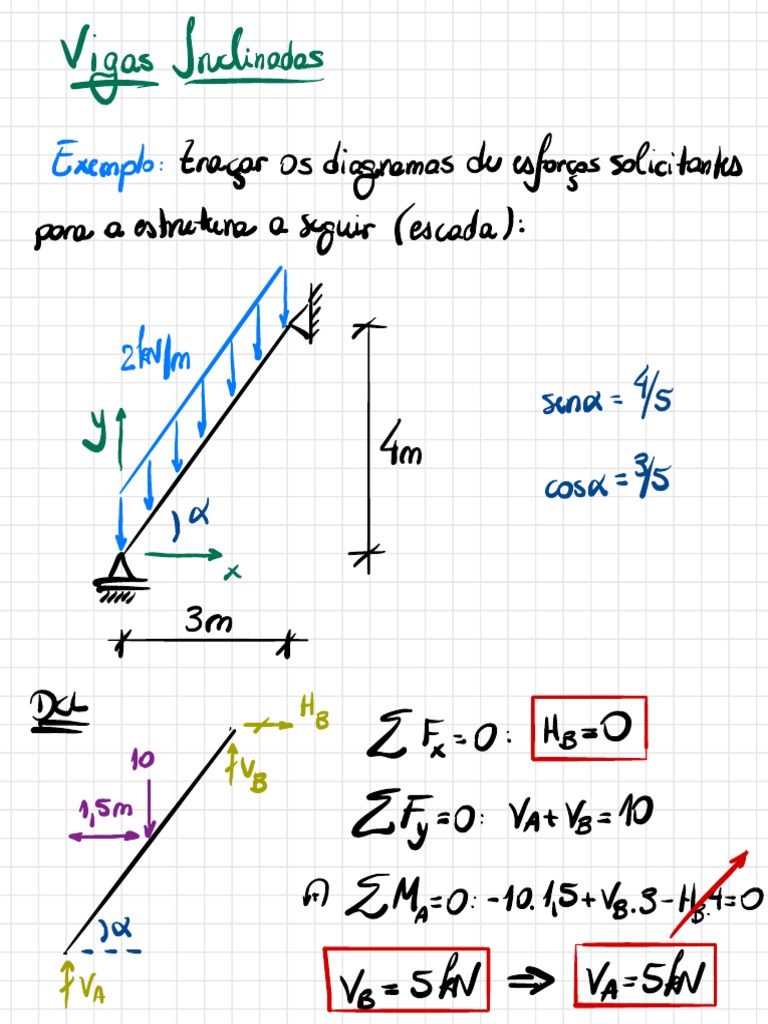 Vigas Inclinadas
Exemplo: traçar os diagramas de esforços solicitantes
para a estrutura a seguir (escada):
2kN/m
y
α
x
4m
3m
senα = 4/5
cosα = 3/5
DCL
H_B
10
V_B
1,5m
α
V_A
∑F_x = 0: H_B = 0
∑F_y = 0: V_A + V_B = 10
∑M_A = 0: -10.1,5 + V_B.3 - H_B.4 = 0
V_B = 5kN ⇒ V_A = 5kN